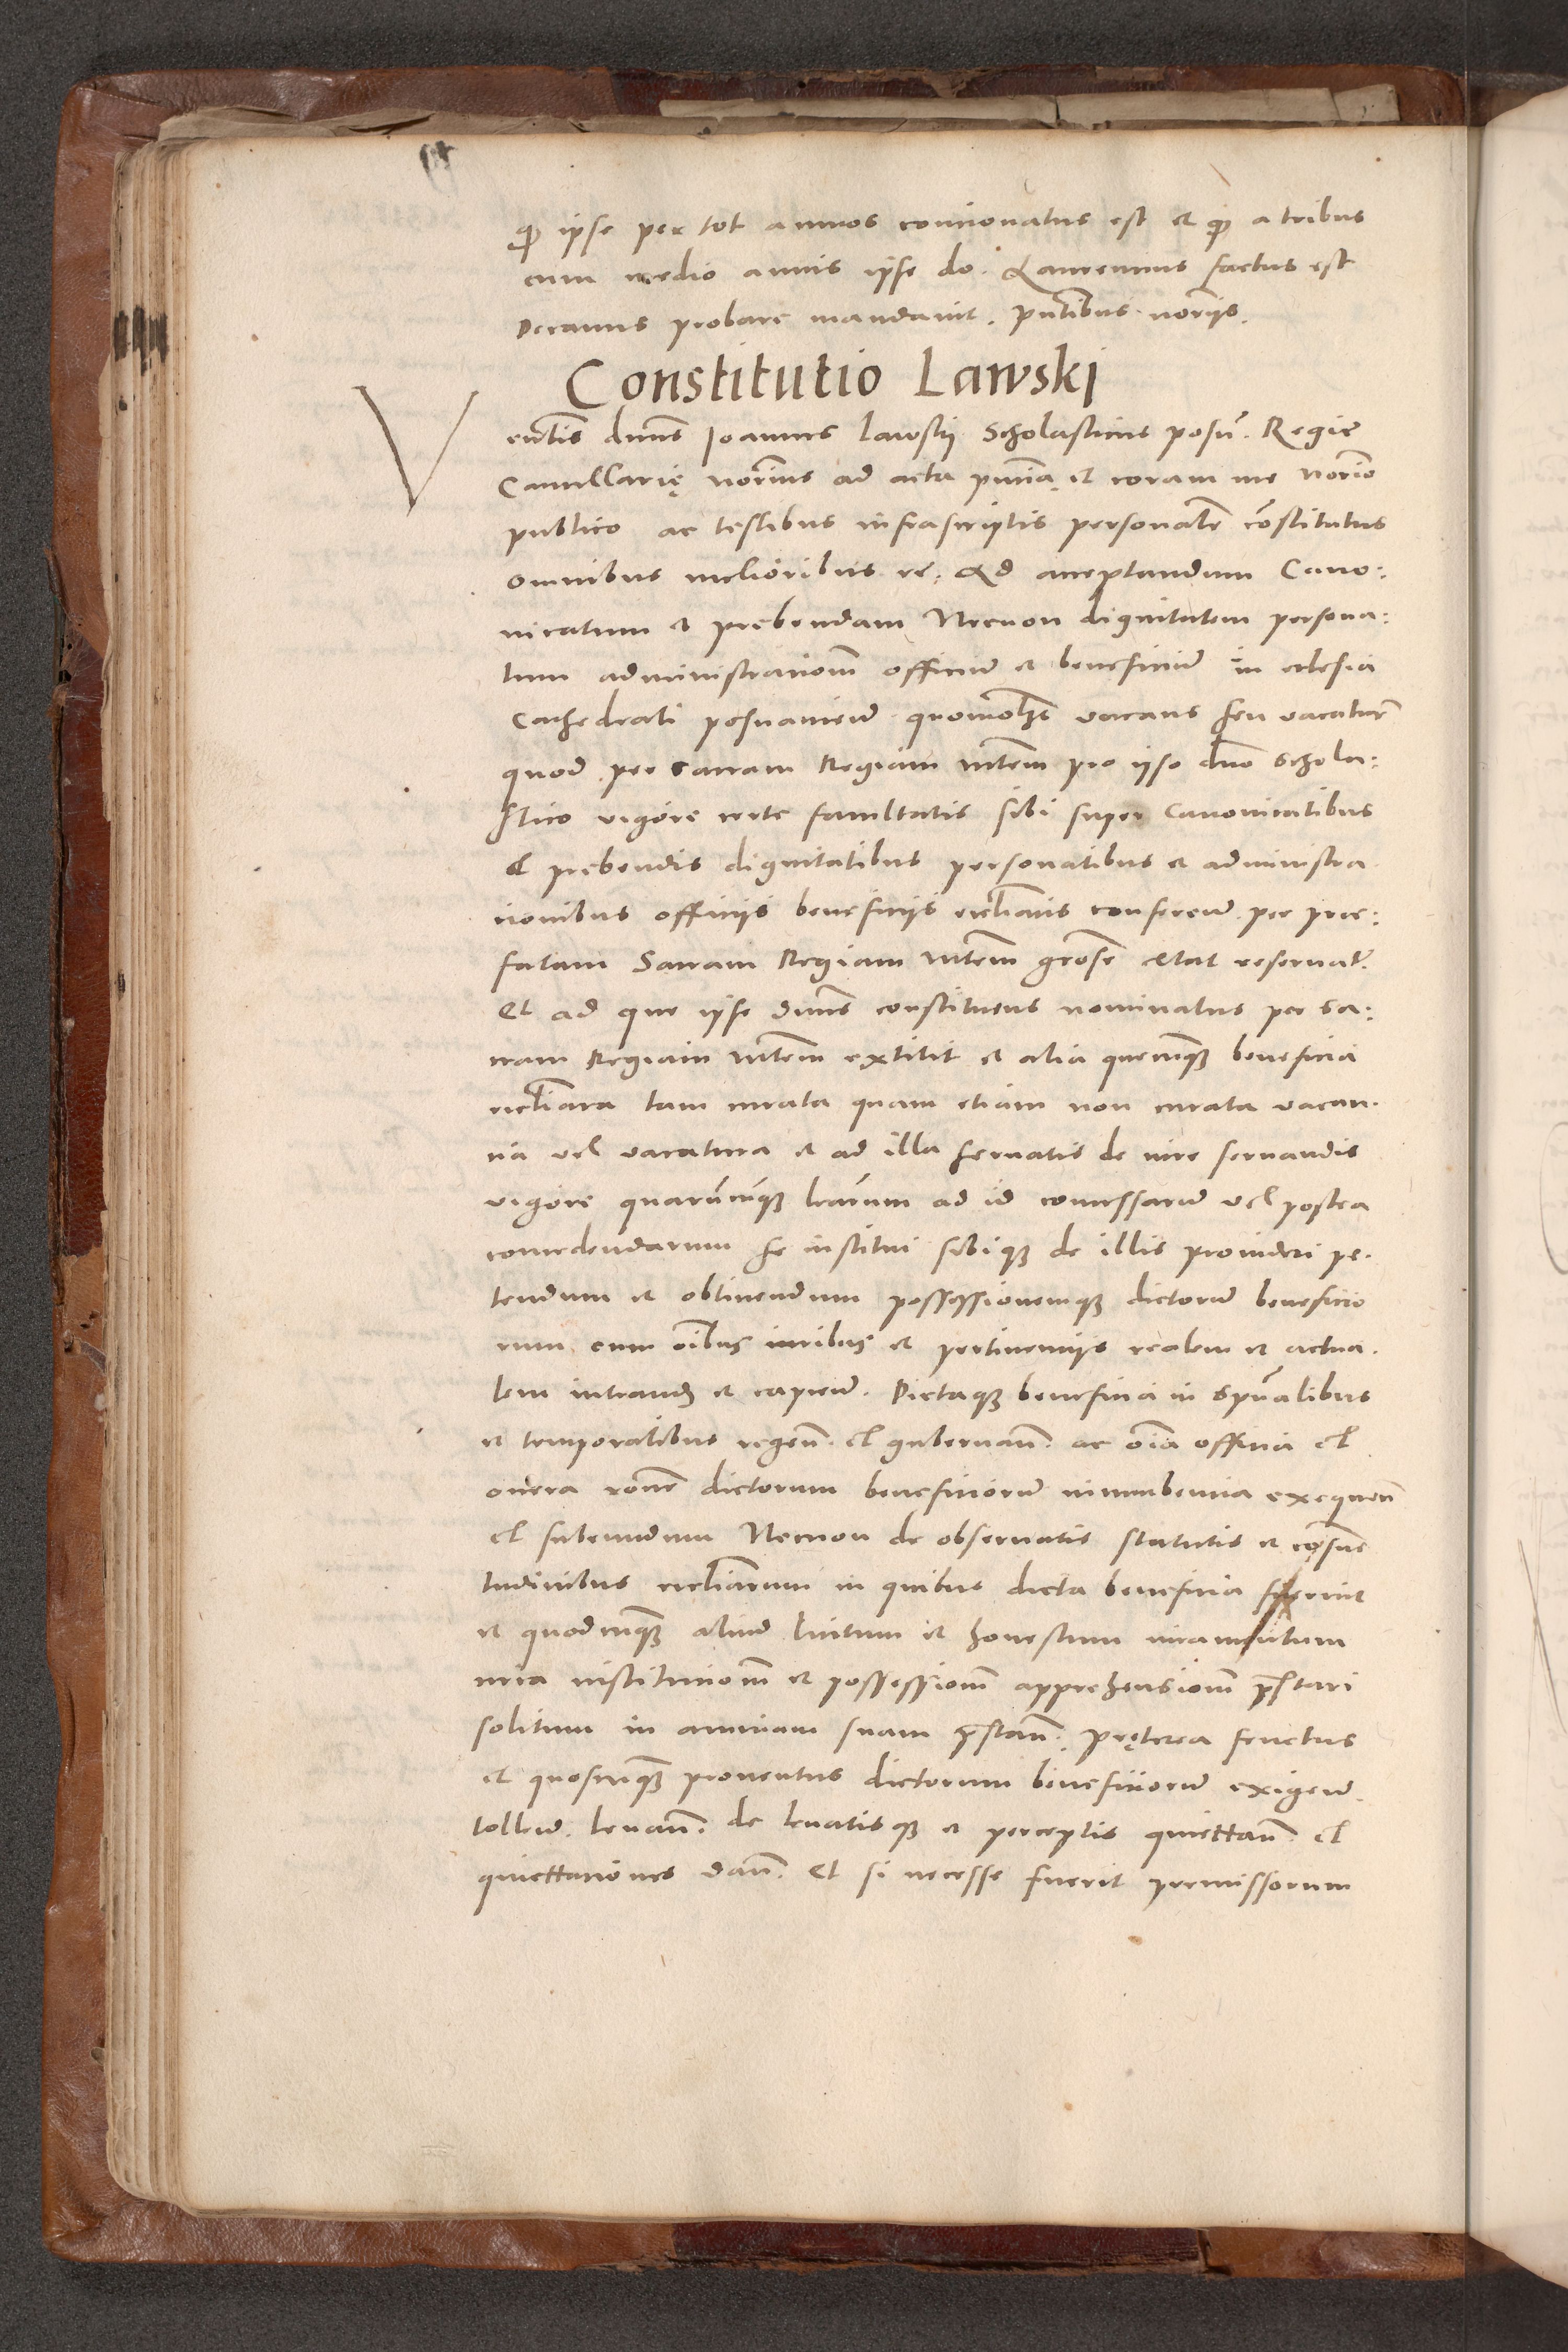 qz ipse per tot annos concionatus est et qz a tribus
cum medio annis ipse do. Laurencius factus est
Decanus probare mandavit. pntibus noriis.
Constitutio Lawski
Venlis dnus Ioannes Lawskij Scholasticus posn. Regie
Cancellarię norius ad acta pncia et coram me norio
publico ac testibus infrascriptis personalr constitutus
omnibus melioribus rc. Ad acceptandum Cano:
nicatum et prębendam Necnon dignitatem persona:
tum administracionem officium et beneficium in eclesia
Cathedrali posnanien quomolt vacans seu vacaturu
quod per Sacram Regiam mtem pro ipso dno Schola:
stico vigore certe facultatis sibi super Canonicatibus
et prebendis dignitatibus personatibus et administra
cionibus officijs beneficijs eccliaticis conferen. per pre:
fatam Sacram Regiam mtem grose extat reservat.
Et ad que ipse dnus constituens nominatus per Sa:
cram Regiam mtem extitit et alia quecunq beneficia
eccliatica tam curata quam etiam non curata vacan.
cia vel vacatura et ad illa servatis de iure servandis
vigore quarucunq lrarum ad id concessaru vel postea
concedendarum se institui sibiq de illis provideri pe.
tendum et obtinendum possessionemq dictoru beneficio
rum cum oibus iuribus et pertinencijs realem et actua.
lem intrand et capien. Dictaq beneficia in spualibus
et temporalibus regen. et gubernan. ac oia officia et
onera rone dictorum beneficioru incumbencia exequen
et subeundum Necnon de observatis statutis et consue
tudinibus eccliarum in quibus dicta beneficia fuerint
et quodcunq aliud licitum et honestum iuramentum
circa institucionem et possessionem apprehensionem prestari
solitum in animam suam prestan. Pręterea fructus
et quoscunq proventus dictorum beneficioru exigen.
tollen. levan. de levatisq et perceptis quiettan. et
quiettaciones dan. Et si necesse fuerit premissorum